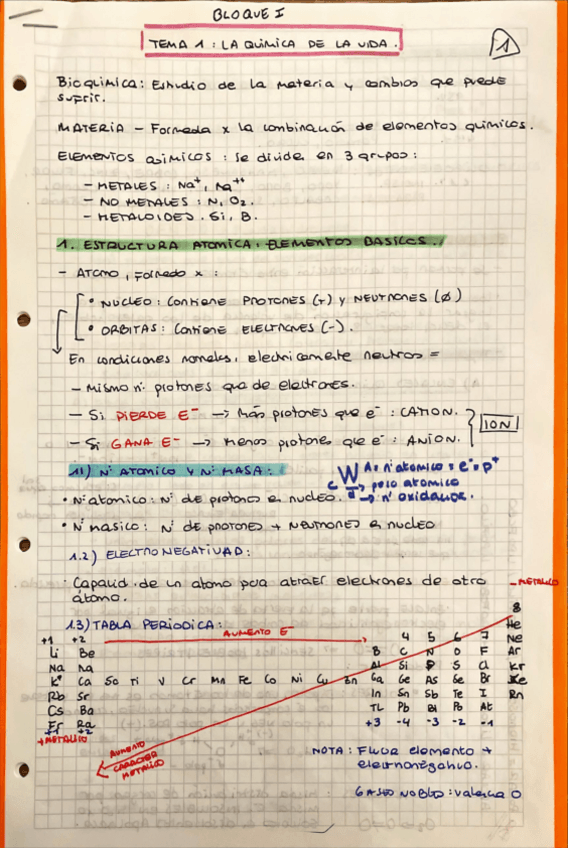 BLOQUE I
TEMA 1: LA QUIMICA DE LA VIDA.
1
Bioquimica: Estudio de la materia y cambios que puede
sufrir.
MATERIA - Formada x la combinación de elementos quimicos.
ELEMENTOS QUIMICOS: Se divide en 3 grupos:
- METALES: Na+, Na++
- NO METALES: N, O2.
- METALOIDES. Si, B.
1. ESTRUCTURA ATOMICA: ELEMENTOS BASICOS.
- ATOMO, Formado x:
• NUCLEO: Contiene PROTONES (+) y NEUTRONES (Ø)
• ORBITAS: Contiene ELECTRONES (-).
En condiciones normales, electricamente neutros =
- Mismo nº protones que de electrones.
- Si PIERDE E- -> Más protones que e-: CATION.
- Si GANA E- -> Menos protones que e-: ANION.
ION
1.1) Nº ATOMICO Y Nº MASA:
A = nº atomico = e- = p+
C W -> peso atomico
-> nº oxidación.
• Nº atomico: Nº de protones en nucleo.
• Nº masico: Nº de PROTONES + NEUTRONES en nucleo
1.2) ELECTRONEGATIVIDAD:
Capacid. de un atomo para atraer electrones de otro
átomo.
- METALICO
1.3) TABLA PERIODICA:
AUMENTO E-
8
+1 +2 4 5 6 7 He
Li Be B C N O F Ne
Na Na Al Si P S Cl Ar
K Ca Sc Ti V Cr Mn Fe Co Ni Cu Zn Ga Ge As Se Br Kr
Rb Sr In Sn Sb Te I Xe
Cs Ba TL Pb Bi Po At Rn
Fr Ra +3 -4 -3 -2 -1
+1 +2
+ METALICO
AUMENTO
CARACTER
METALICO
NOTA: Fluor elemento +
electronegativo.
GASES NOBLES: valencia 0